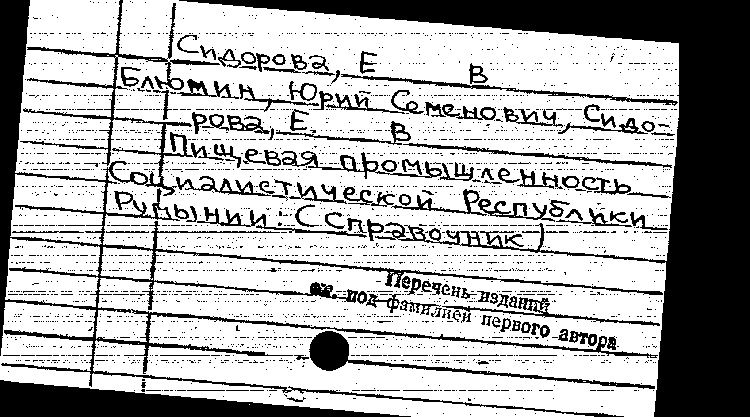 Сидорова, Е В
Блюмин, Юрий Семенович, Сидо-
рова, Е. В
Пищевая промышленность
Социалистической Республики
Румынии: (Справочник)
Перечень изданий
см. под фамилией первого автора